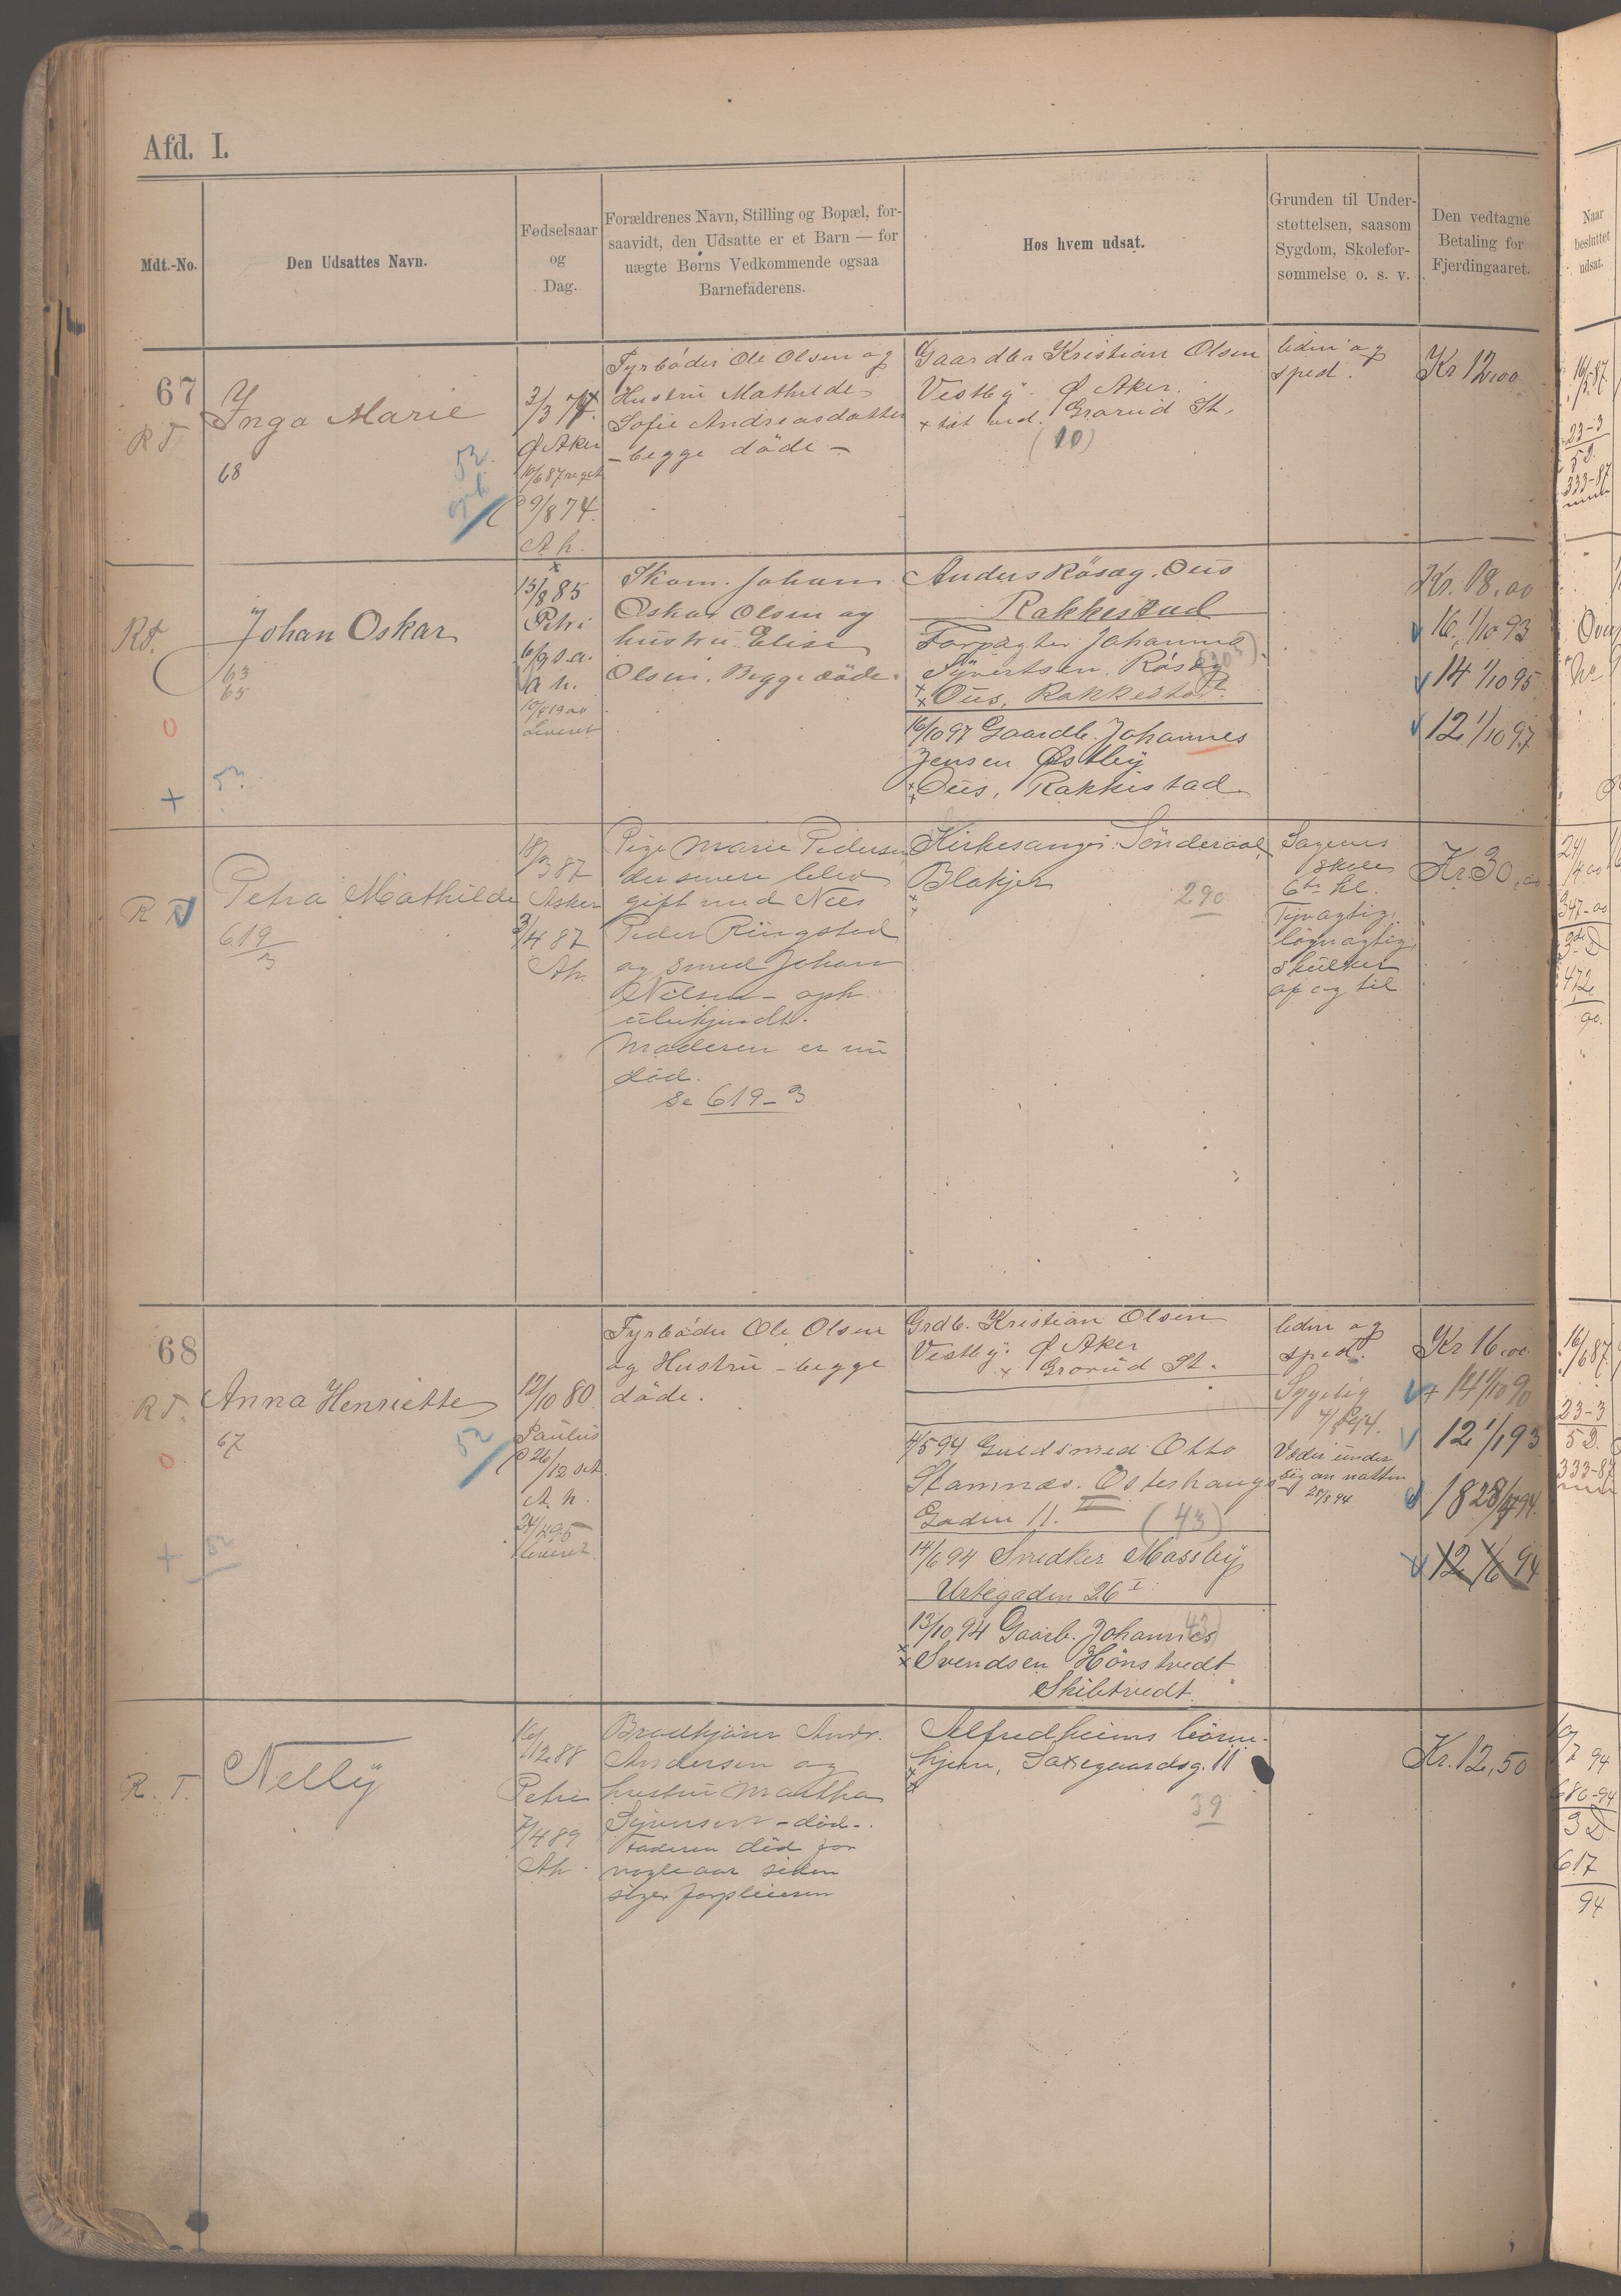 Afd. I.
Mdt.-No.
Den Udsattes Navn.
Fødselsaar
og
Dag.
Forældrenes Navn, Stilling og Bopæl, for-
saavidt, den Udsatte er et Barn — for
uægte Børns Vedkommende ogsaa
Barnefaderens.
Hos hvem udsat.
Grunden til Under-
støttelsen, saasom
Sygdom, Skolefor-
sømmelse o. s. v.
Den vedtagne
Betaling for
Fjerdingaaret.
Naar
besluttet
udsat.
67
R T
Inga Marie
68
52
3/3 74.
Ø Aker
9/8 74.
A h.
Fyrbøder Ole Olsen og
Hustru Mathilde
Sofie Andreasdatter
– begge døde –
Gaardbr Kristian Olsen
Vestby. Ø Aker.
Grorud St.
(10)
liden og
sped.
Kr 12,00
Rt.
Johan Oskar
63
65
52
13/8 85
Petri
6/9 s.a.
a h.
Leveret
Skom. Johan
Oskar Olsen og
hustru Elise
Olsen. Begge døde.
Anders Røsæg. Ous
Rakkestad
Forpagter Johannes
Syvertsen. Røsæg
Ous, Rakkestad.
16/10 97 Gaardb. Johannes
Jensen Østby
Ous, Rakkestad
Kr. 18,00
16, 1/10 93
14 1/10 95
12 1/10 97
R T
Petra Mathilde
619/3
18/3 87
Asker
3/4 87
Ah.
Pige Marie Pedersen
der senere blev
gift med Nils
Peder Ringstad
og Smed Johan
Nilsen – oph.
ubekjendt.
Moderen er nu
død.
Se 619-3
Kirkesanger Sønderaal,
Blakjer
290
Sagenes
Skole
6te kl.
Tyvagtig,
løgnagtig,
skulker
af og til
Kr 30,00
68
R T.
Anna Henriette
67
52
52
12/10 80
Paulus
26/12
A h.
Leveret
Fyrbøder Ole Olsen
og Hustru – begge
døde.
Grdb. Kristian Olsen
Vestby. Ø Aker
Grorud St.
4/5 94 Guldsmed Otto
Stamnæs. Osterhaugs
Gaden 11. II
(43)
14/6 94 Snedker Massby
Urtegaden 26 I
13/10 94 Gaarb. Johannes
Svendsen Hønstvedt
Skibtvedt
liden og
sped.
Sygelig
Væder under
sig om natten
28/8 94
Kr 16,00
14 1/10 90
12 1/1 93
12 1/6 94
R. T.
Nelly
16/12 88
Petri
7/4 89
Ah.
Brødkjører Andr.
Andersen og
hustru Martha
Syversen – død.
Faderen død for
nogle aar siden
siger forpleieren
Alfredheims børne-
hjem, Saxegaardsg. 11
39
Kr. 12,50
16/6 87
23-3
333-87
24/4 00
347-00
472
90.
16/6 87
23-3
333-87
680-94
617
94